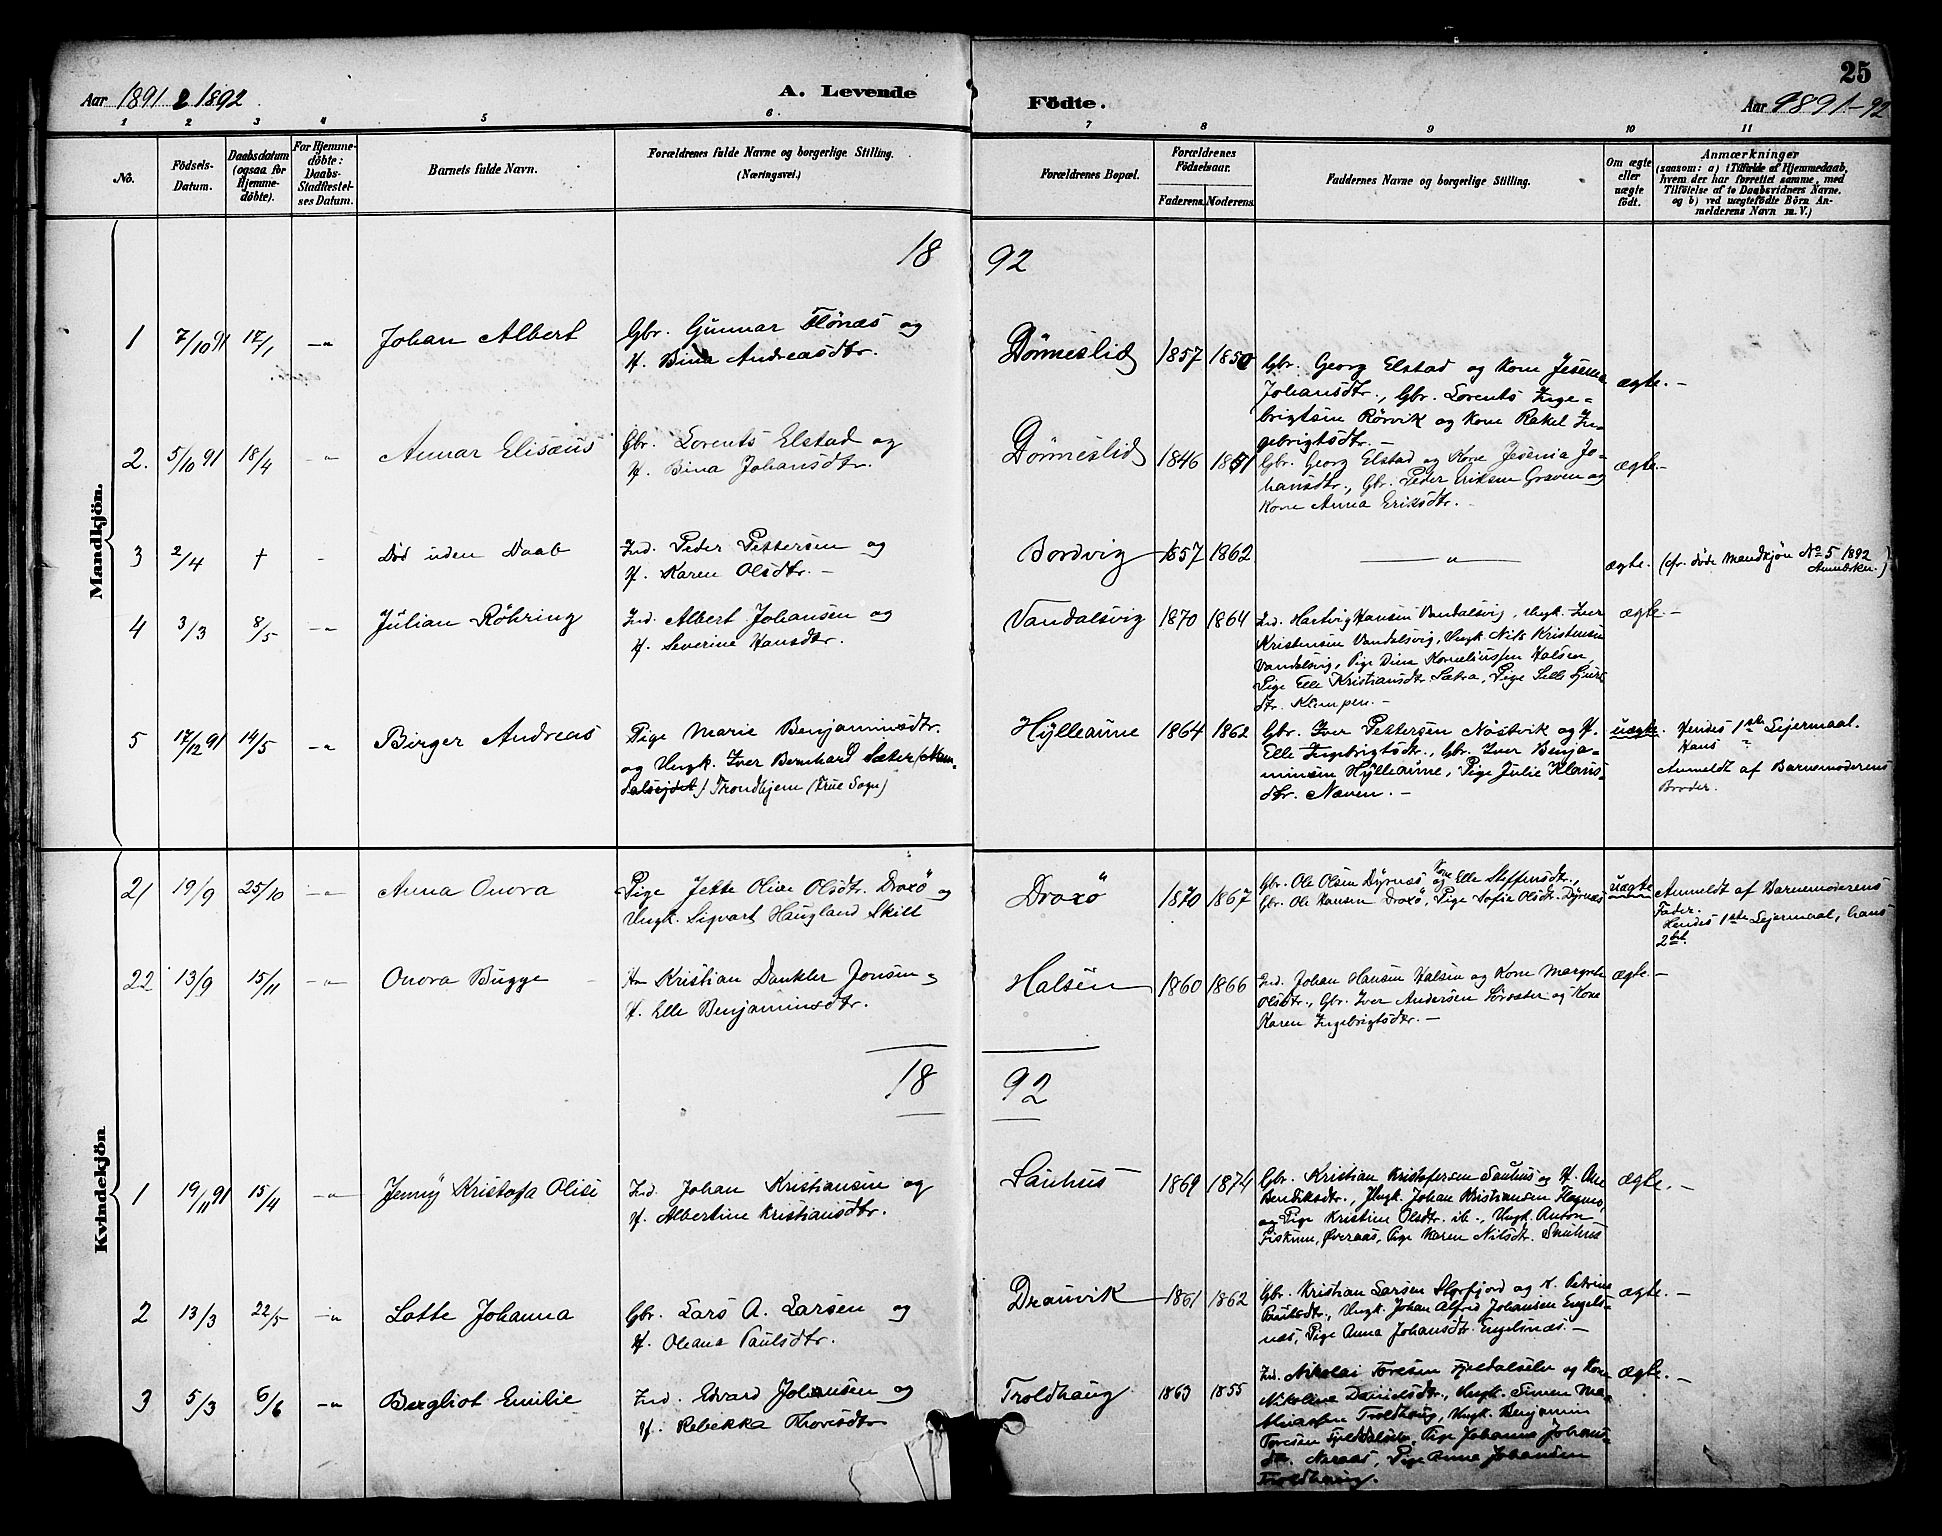 25
Aar 1891 & 1892. A. Levende Fødte. Aar 1891-92
1 2 3 4 5 6 7 8 9 10 11
No.
Fødsels-Datum.
Daabsdatum (ogsaa for Hjemme-døbte).
For Hjemme-døbte: Daabs-Stadfæstel-ses Datum.
Barnets fulde Navn.
Forældrenes fulde Navne og borgerlige Stilling.
(Næringsvei.)
Forældrenes Bopæl.
Forældrenes Fødselsaar.
Faderens. Moderens.
Faddernes Navne og borgerlige Stilling.
Om ægte eller uægte født.
Anmærkninger
(saasom: a) i Tilfælde af Hjemmedaab,
hvem der har forrettet samme, med
Tilføielse af to Daabsvidners Navne.
og b) ved uægtefødte Børn An-
melderens Navn m. V.)
Mandkjøn.
18 92
1 7/10 91 17/1 -"- Johan Albert
Gbr. Gunnar Flønæs og
H. Bina Andreasdtr.
Dønneslid 1857 1850
Gbr. Georg Elstad og Kone Jesenia
Johansdtr., Gbr. Lorents Inge-
brigtsen Rørvik og Kone Rakel In-
gebrigtsdtr. -
ægte. -
2. 5/10 91 18/4 -"- Annar Elisæus
Gbr. Lorents Elstad og
H. Bina Johansdtr.
Dønneslid 1846 1851
Gbr. Georg Elstad og Kone Jesenia Jo-
hansdtr., Gbr. Peder Eriksen Graven og
Kone Anna Eriksdtr. -
ægte. -
3 2/4 † - Død uden Daab
Ind. Peder Pettersen og
H. Karen Olsdtr. -
Bordvig 1857 1862 —"—
ægte. (cfr. døde Mandkjøn No 5 1892
Anmærkn.)
4 3/3 8/5 -"- Julian Røhring
Ind. Albert Johansen og
H. Severine Hansdtr.
Vandalsvig 1870 1864
Ind. Hartvig Hansen Vandalsvig, Ungk. Iver
Kristensen Vandalsvig, Ungk. Nils Kristensen
Vandalsvig, Pige Dina Korneliussen Halsen,
Pige Elle Kristiansdtr Sætra, Pige
dtr. Klimpen. -
ægte. -
5 17/12 91 14/5 -"- Birger Andreas
Pige Marie Benjaminsdtr.
og Ungk. Iver Bernhard Sæter (Nam-
Trondhjem (Frue Sogn)
Hylleaune 1864 1862
Gbr. Iver Pettersen Nøstvik og H.
Elle Ingebrigtsdtr., Gbr. Iver Benja-
minsen Hylleaune, Pige Julie Klaus-
dtr. Næven. -
uægte. Hendes 1ste Leiermaal.
Hans "
Anmeldt af Barnemoderens
Broder.
Kvindekjøn
21 19/9 25/10 -"- Anna Onora
Pige Jette Olive Olsdtr. Draxø og
Ungk. Sigvart Haugland Skilt
Draxø 1870 1867
Gbr. Ole Olsen Dyrnæs og Kone Elle Steffensdtr.,
Gbr. Ole Hansen Draxø, Pige Sofie Olsdtr. Dyrnæs
uægte Anmeldt af Barnemoderens
Fader.
Hendes 1ste Leiermaal, hans
2det.
22 13/9 15/11 -"- Onora Bugge
Kristian Dankler Jensen og
H. Elle Benjaminsdtr.
Halsen 1860 1866
Ind. Johan Hansen Halsen og Kone Margrete
Olsdtr., Gbr. Iver Andersen Sørsæter og Kone
Karen Ingebrigtsdtr. -
ægte. -
18 92
1 19/11 91 15/4 -"- Jenny Kristofa Olise
Ind. Johan Kristiansen og
H. Albertine Kristiansdtr.
Sauhus 1869 1874
Gbr. Kristian Kristofersen Sauhus og H. Ane
Bendiksdtr., Ungk. Johan Kristiansen Flagmo,
og Pige Kristine Olsdtr. ib., Ungk. Anton
Fiskum, Øveraas, Pige Karen Nilsdtr. Sauhus
ægte. -
2 13/3 22/5 -"- Lotte Johanna
Gbr. Lars A. Larsen og
H. Oleana Paulsdtr.
Drauvik 1861 1862
Gbr. Kristian Larsen Storfjord og K. Petrine
Paulsdtr., Ungk. Johan Alfred Johansen Engels-
næs, Pige Anna Johansdtr. Engelsnæs. -
ægte. -
3 5/3 6/6 -"- Bergliot Emilie
Ind. Edvard Johansen og
H. Rebekka Thorisdtr
Troldhaug 1863 1855
Ind. Nikolai Toresen Fjeldalselv og Kone
Nikoline Danielsdtr., Ungk. Simen Ma-
Troldhaug, Ungk. Benjamin
Toresen Fjeldalselv, Pige Johanna Johans-
dtr. Aaraas, Pige Anna Johansen
Troldhaug.
ægte. -